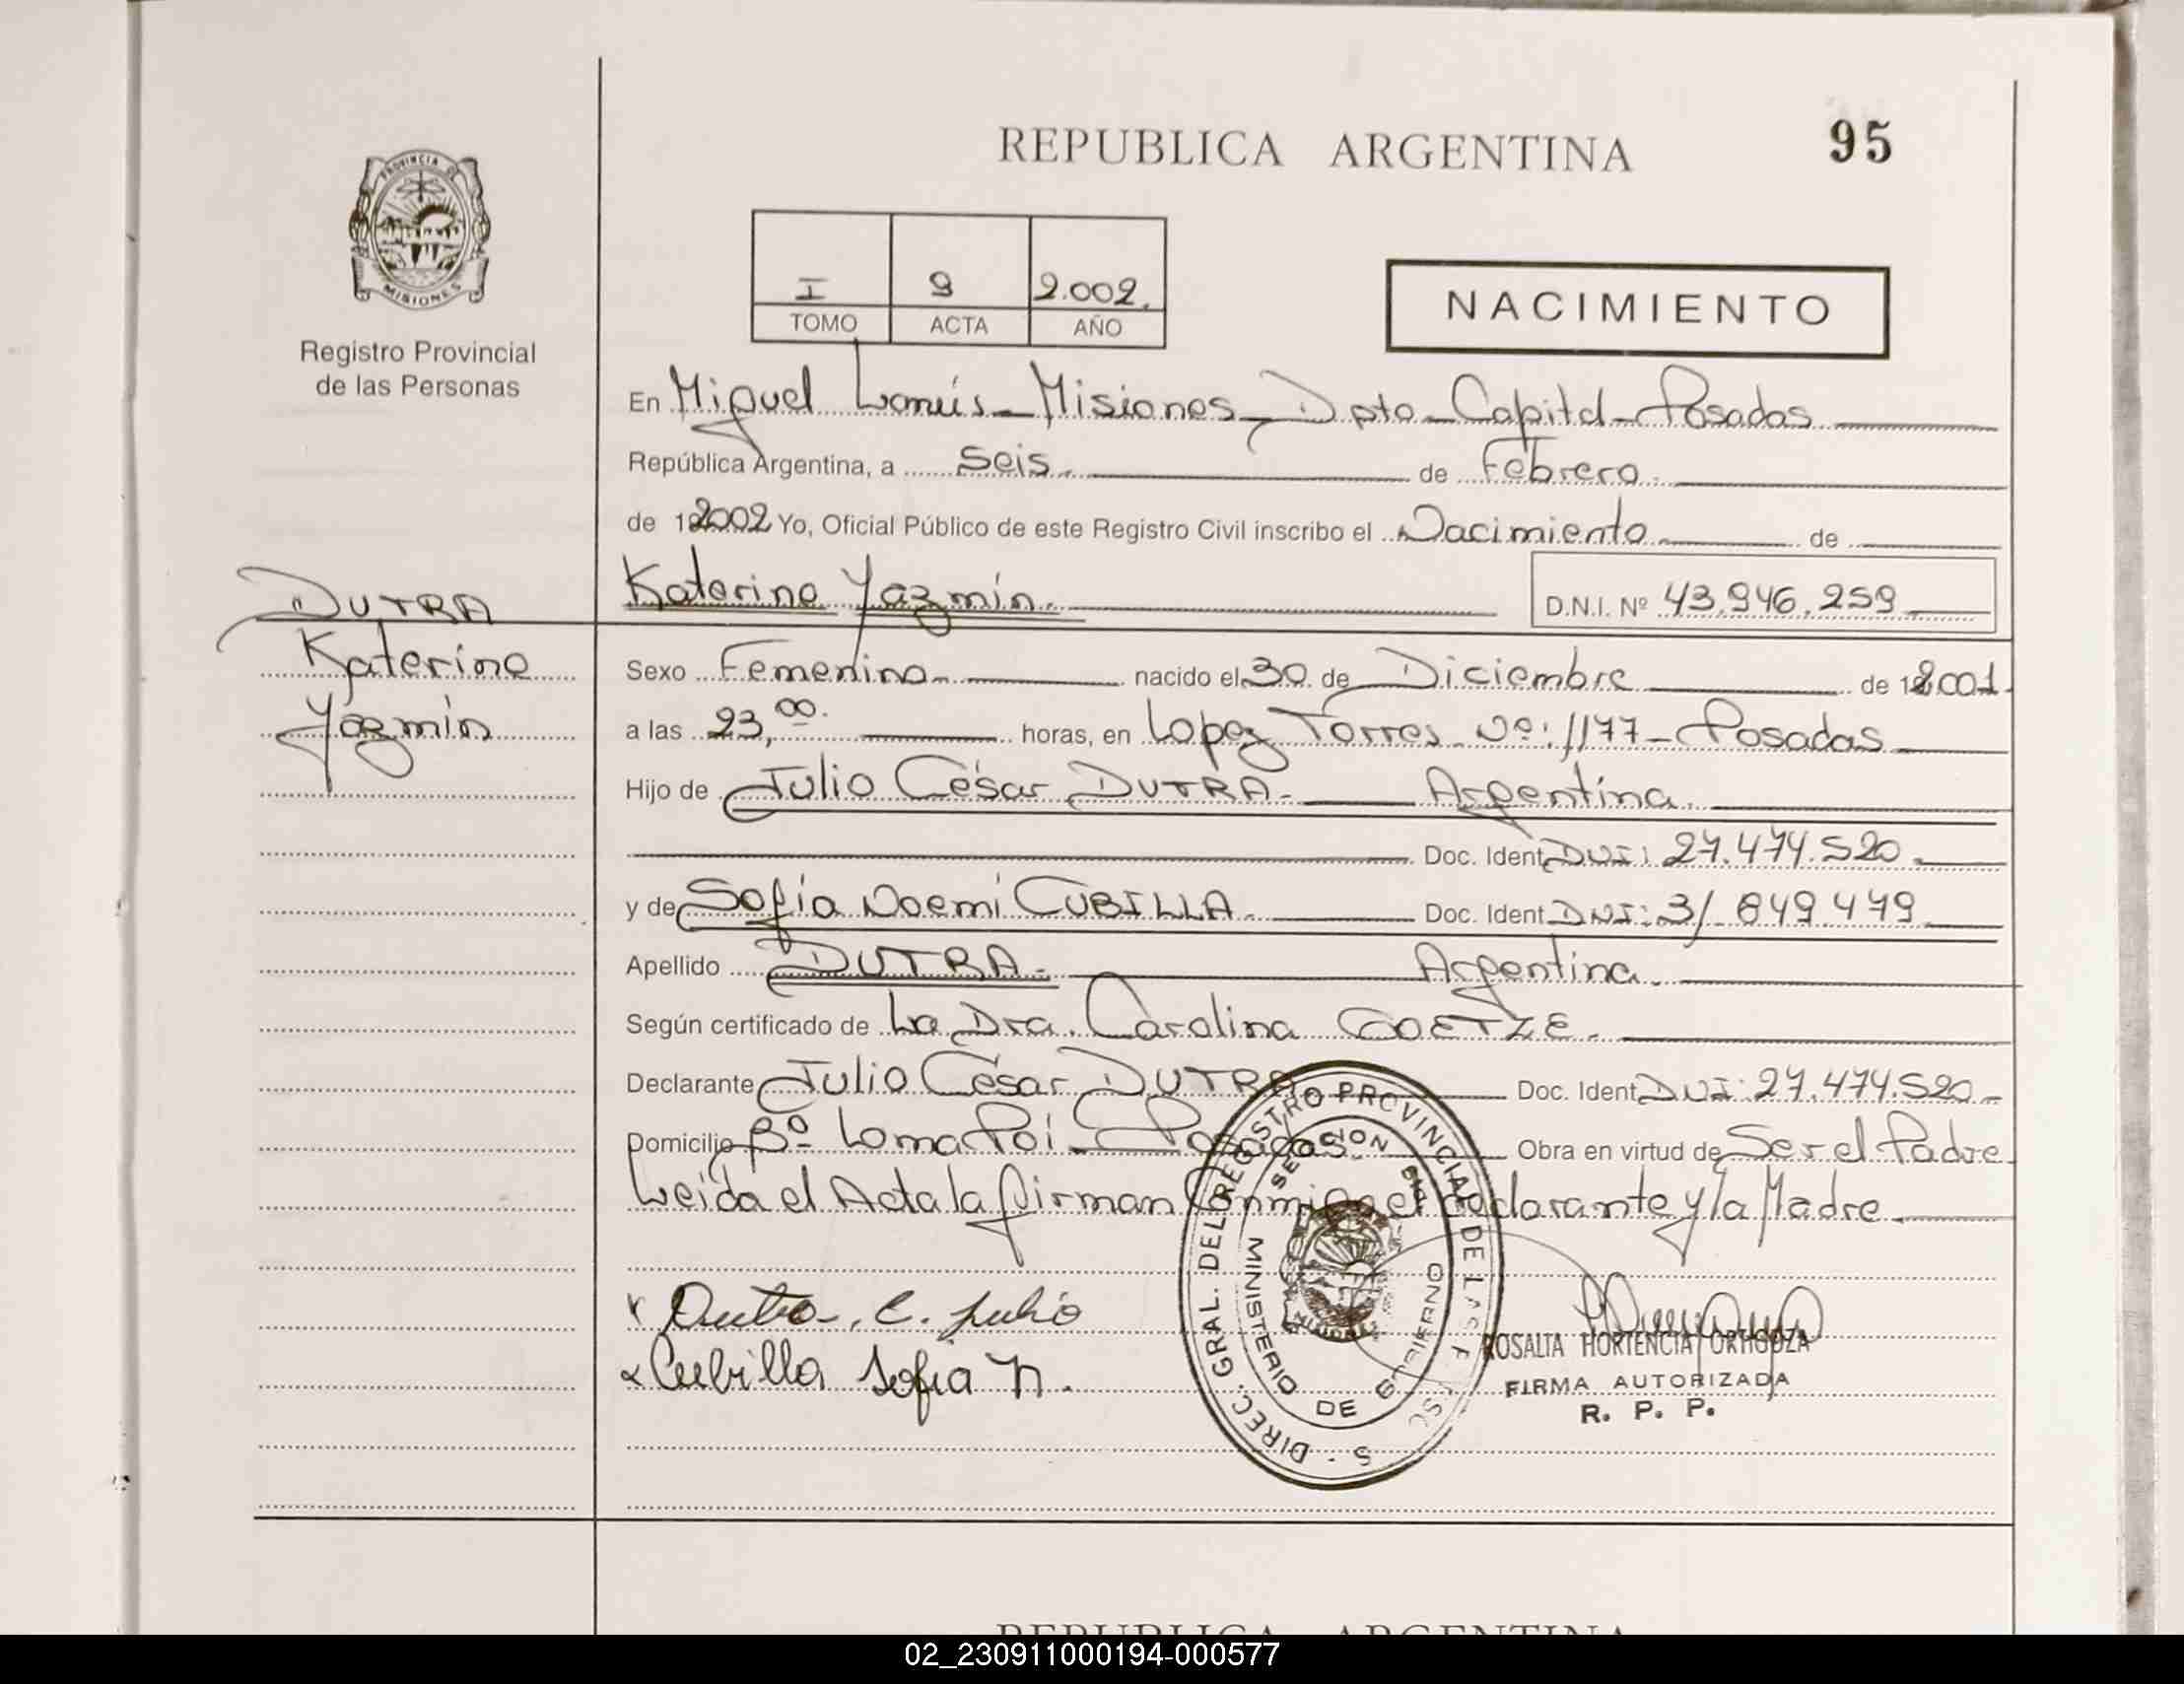 REPUBLICA ARGENTINA
95
PROVINCIA DE
MISIONES
Registro Provincial
de las Personas
I 9 2.002.
TOMO ACTA AÑO
NACIMIENTO
En Miguel Lanús - Misiones - Dpto - Capital - Posadas
República Argentina, a Seis. de Febrero.
de 2002 Yo, Oficial Público de este Registro Civil inscribo el Nacimiento de
Katerine Yazmín. D.N.I. Nº 43.946.259
DUTRA
Katerine
Yazmín
Sexo Femenino nacido el 30 de Diciembre de 2001.
a las 23,00. horas, en Lopez Torres Nº: 1177 - Posadas
Hijo de Julio César DUTRA - Argentina.
Doc. Ident DNI: 27.474.520
y de Sofía Noemí CUBILLA. Doc. Ident DNI: 31.849.479
Apellido DUTRA - Argentina.
Según certificado de La Dra. Carolina GOETZE.
Declarante Julio César DUTRA Doc. Ident DNI: 27.474.520
Domicilio Bº Loma Poí - Posadas Obra en virtud de Ser el Padre
Leída el Acta la firman Conmigo el declarante y la Madre
Dutra, C. Julio
Cubilla Sofia N.
DIREC. GRAL. DEL REGISTRO PROVINCIAL DE LAS
MINISTERIO DE GOBIERNO
ROSALIA HORTENCIA ORTIGOZA
FIRMA AUTORIZADA
R. P. P.
REPUBLICA ARGENTINA
02_230911000194-000577